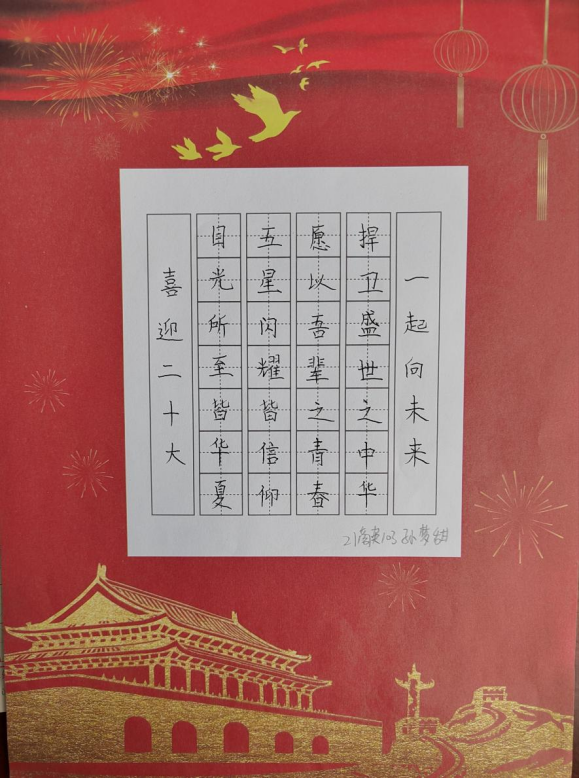 喜迎二十大
目光所至皆华夏
五星闪耀皆信仰
愿以吾辈之青春
捍卫盛世之中华
一起向未来